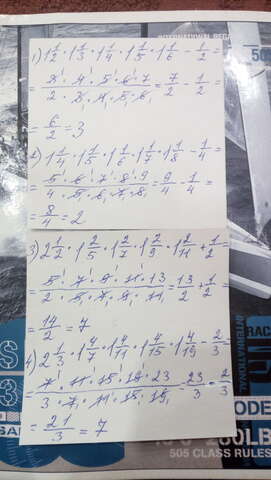 1) 1 1/2 · 1 1/3 · 1 1/4 · 1 1/5 · 1 1/6 - 1/2 =
= 3 · 4 · 5 · 6 · 7 / 2 · 3 · 4 · 5 · 6 = 7/2 - 1/2 =
= 6/2 = 3
2) 1 1/4 · 1 1/5 · 1 1/6 · 1 1/7 · 1 1/8 - 1/4 =
= 5 · 6 · 7 · 8 · 9 / 4 · 5 · 6 · 7 · 8 = 9/4 - 1/4 =
= 8/4 = 2
3) 2 1/2 · 1 2/5 · 1 2/7 · 1 2/9 · 1 2/11 + 1/2 =
= 5 · 7 · 9 · 11 · 13 / 2 · 5 · 7 · 9 · 11 = 13/2 + 1/2 =
= 14/2 = 7
4) 2 1/3 · 1 4/7 · 1 4/11 · 1 4/15 · 1 4/19 - 2/3
= 7 · 11 · 15 · 19 · 23 / 3 · 7 · 11 · 15 · 19 = 23/3 - 2/3
= 21/3 = 7
INTERNATIONAL
505 CLASS RULES